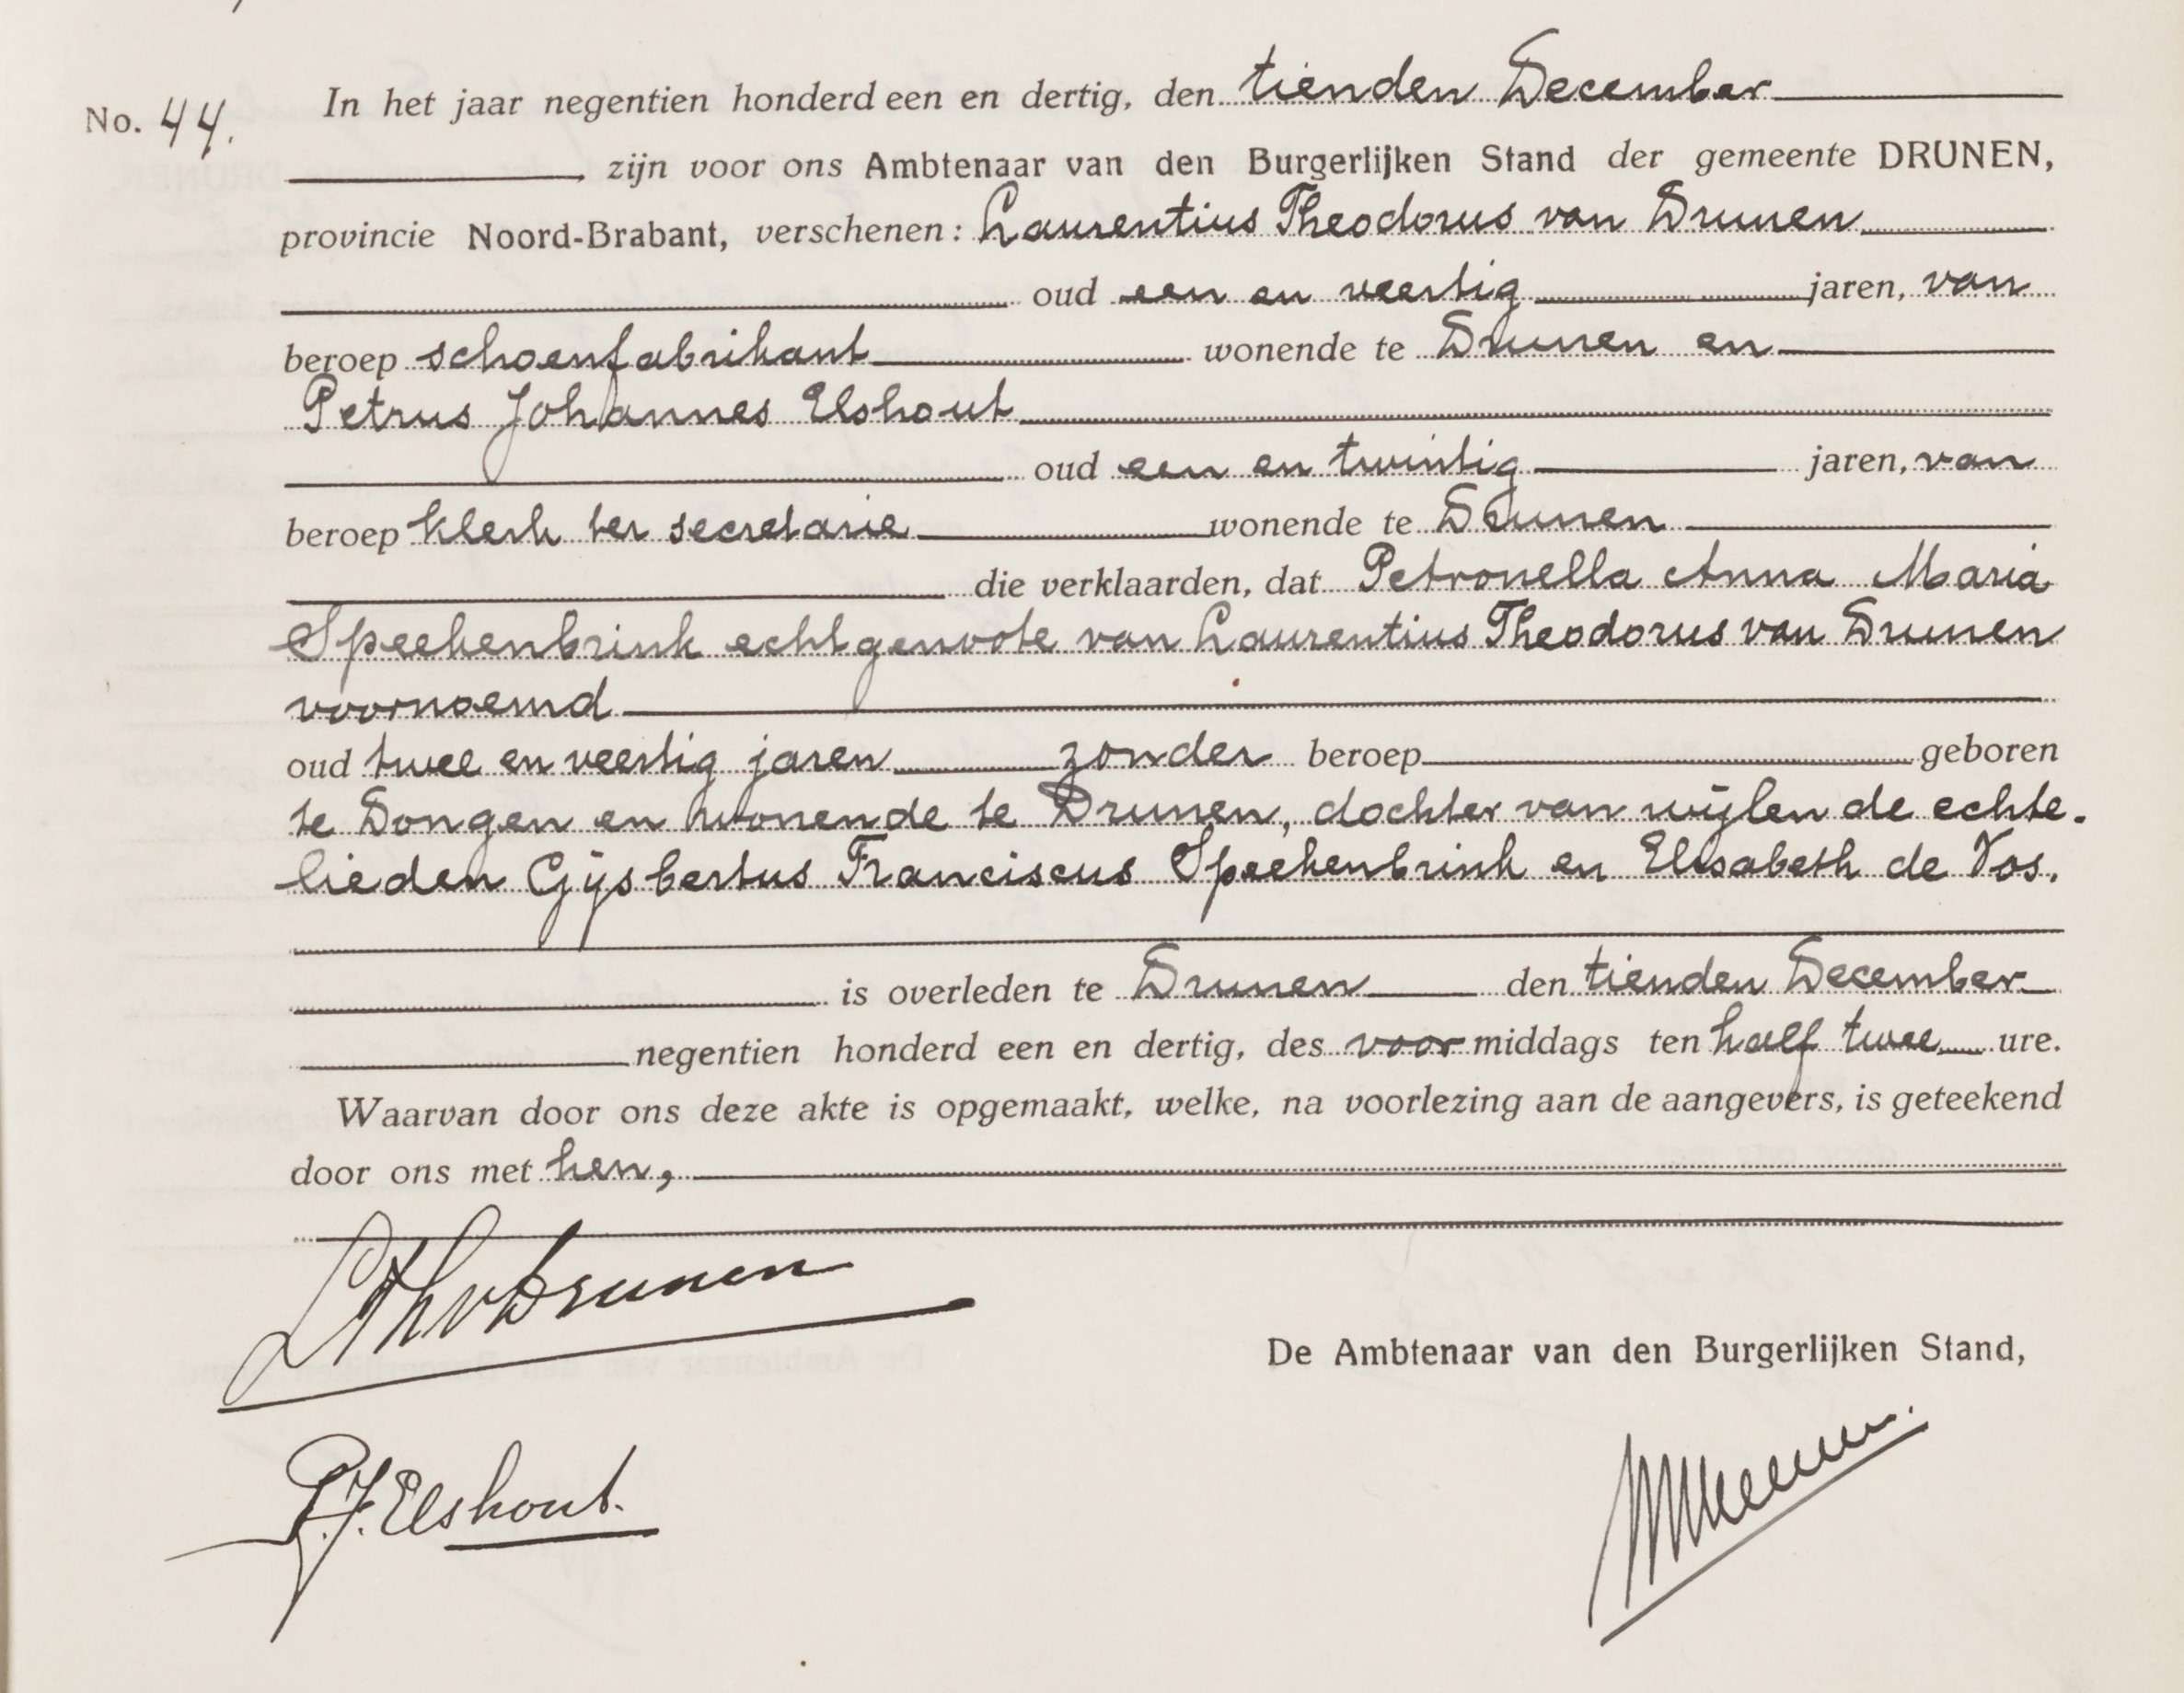 No. 44. In het jaar negentien honderd een en dertig, den tienden December
zijn voor ons Ambtenaar van den Burgerlijken Stand der gemeente DRUNEN,
provincie Noord-Brabant, verschenen: Laurentius Theodorus van Drunen
oud een en veertig jaren, van
beroep schoenfabrikant wonende te Drunen en
Petrus Johannes Elshout
oud een en twintig jaren, van
beroep klerk ter secretarie wonende te Drunen
die verklaarden, dat Petronella Anna Maria
Speekenbrink echtgenoote van Laurentius Theodorus van Drunen
voornoemd
oud twee en veertig jaren zonder beroep geboren
te Dongen en wonende te Drunen, dochter van wijlen de echte-
lieden Gijsbertus Franciscus Speekenbrink en Elisabeth de Vos.
is overleden te Drunen den tienden December
negentien honderd een en dertig, des voormiddags ten half twee ure.
Waarvan door ons deze akte is opgemaakt, welke, na voorlezing aan de aangevers, is geteekend
door ons met hen,
LThvDrunen
De Ambtenaar van den Burgerlijken Stand,
P.J. Elshout.